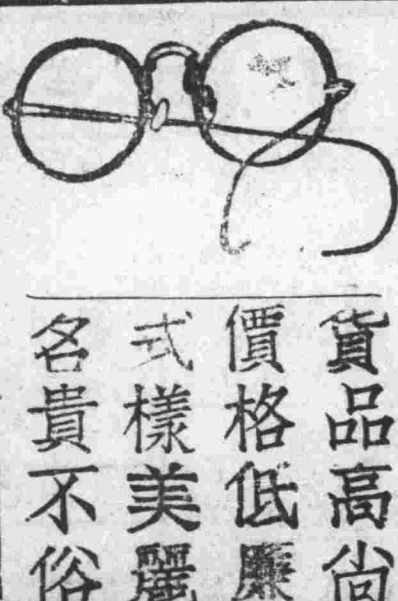 貨品高尚
價格低廉
式樣美麗
名貴不俗